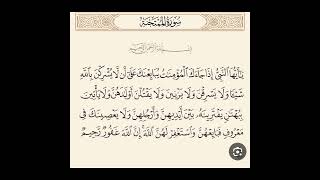 سُورَةُ الْمُمْتَحِنَةِ
بِسْمِ اللَّهِ الرَّحْمَٰنِ الرَّحِيمِ
يَٰٓأَيُّهَا ٱلنَّبِىُّ إِذَا جَآءَكَ ٱلْمُؤْمِنَٰتُ يُبَايِعْنَكَ عَلَىٰٓ أَن لَّا يُشْرِكْنَ بِٱللَّهِ
شَيْـًٔا وَلَا يَسْرِقْنَ وَلَا يَزْنِينَ وَلَا يَقْتُلْنَ أَوْلَٰدَهُنَّ وَلَا يَأْتِينَ
بِبُهْتَٰنٍ يَفْتَرِينَهُۥ بَيْنَ أَيْدِيهِنَّ وَأَرْجُلِهِنَّ وَلَا يَعْصِينَكَ فِى
مَعْرُوفٍ فَبَايِعْهُنَّ وَٱسْتَغْفِرْ لَهُنَّ ٱللَّهَ إِنَّ ٱللَّهَ غَفُورٌ رَّحِيمٌ